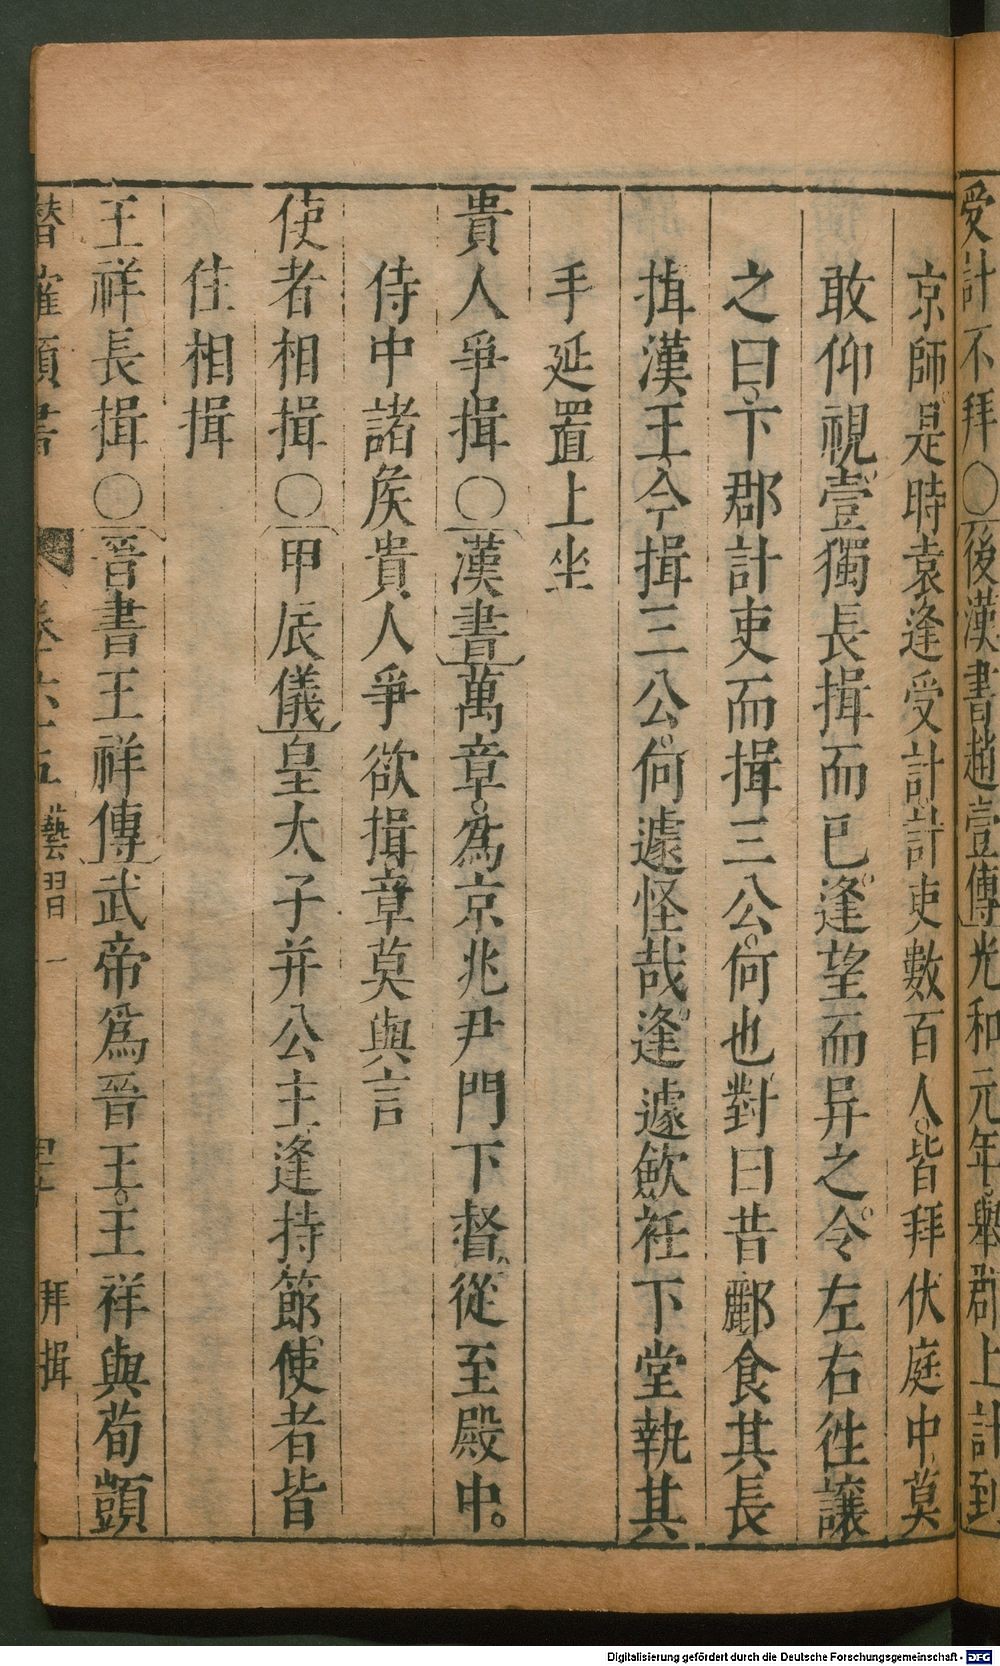 受計不拜○後漢書趙壹傳光和元年。舉郡上計到
京師。是時袁逢受計計吏數百人。皆拜伏庭中莫
敢仰視。壹獨長揖而已。逢望而异之。令左右徃讓
之曰。下郡計吏而揖三公。何也對曰昔酈食其長
揖漢王今揖三公。何遽怪哉逢遽歛衽下堂執其
手延置上坐
貴人爭揖○漢書萬章。為京兆尹門下督從至殿中。
侍中諸矦貴人爭欲揖章莫與言
使者相揖○甲辰儀皇太子并公主逢持節。使者皆
住相揖
王祥長揖○晉書王祥傳武帝爲晉王。王祥與荀顗
潛確類書 卷六十五 藝習一 拜揖
Digitalisierung gefördert durch die Deutsche Forschungsgemeinschaft - DFG